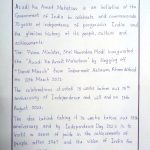 Azadi Ka Amrit Mahotsav is an initiative of the
Government of India to celebrate and commemorate
75 years of independence of progressive India and
the glorious history of its people, culture and
achievements.
The "Prime Minister, Shri Narendra Modi inaugurated
the "Azadi Ka Amrit Mahotsav" by flagging off
"Dandi March" from Sabarmati Ashram Ahmedabad
on 12th March 2021
The celebrations started 75 weeks before our 75th
anniversary of Independence and will end on 15th
August 2023.
The idea behind taking it 75 weeks before our 75th
anniversary and to Independence Day 2023 is to
instill a sense of pride in the achievements of
people after 1947 and the vision of India